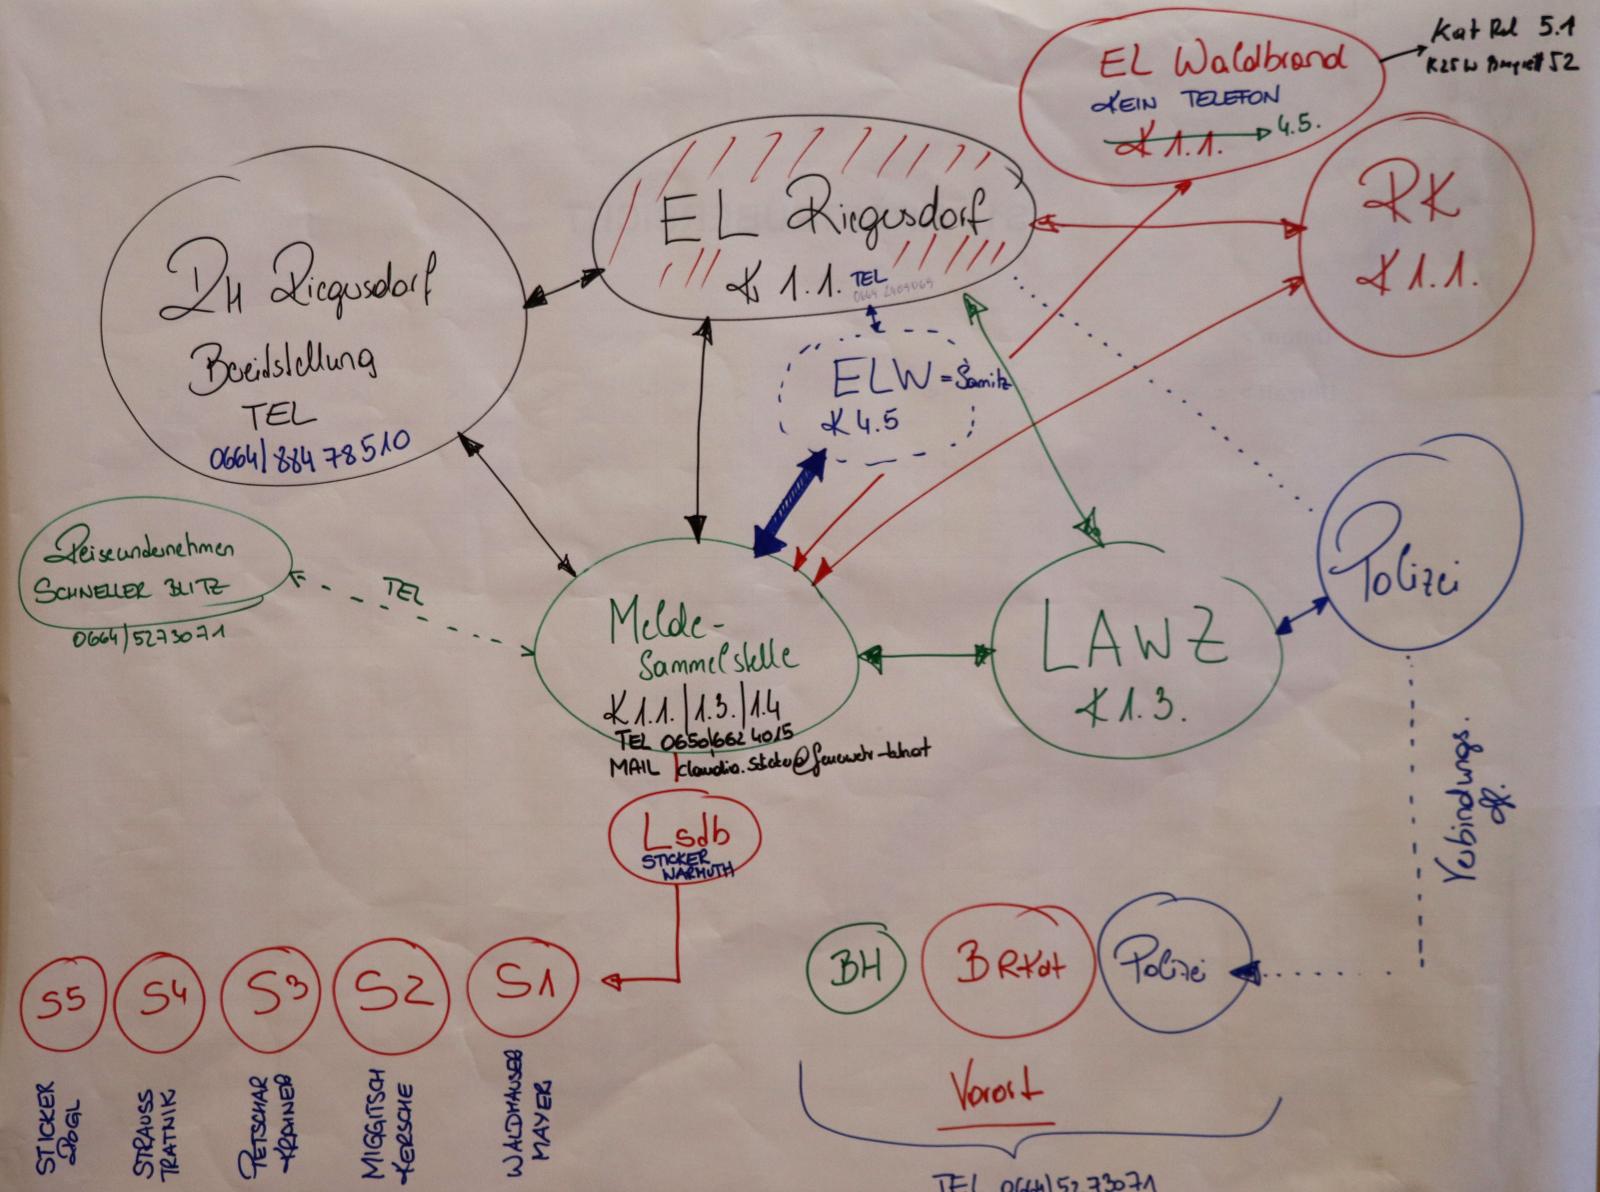 Kat Rd 5.1
EL Waldbrand
KEIN TELEFON
K 1.1.
4.5.
RK
K 1.1.
EL Riegersdorf
K 1.1.
TEL
RH Riegersdorf
Bereitstellung
TEL
0664/88478510
ELW = Samitz
K 4.5
Reiseunternehmen
SCHNELLER BLITZ
0664/5273071
TEL
Polizei
Melde-
Sammelstelle
K 1.1./1.3./1.4
TEL 0650/6624015
MAIL
LAWZ
K 1.3.
Verbindungs
off.
Lsdb
STICKER
WARMUTH
S5
S4
S3
S2
S1
BH
BRKdt
Polizei
STICKER
DOGL
STRAUSS
TRATNIK
PETSCHAR
KRAINER
MIGGITSCH
KERSCHE
WALDHAUSER
MAYER
Vorort
TEL 0664/5273071